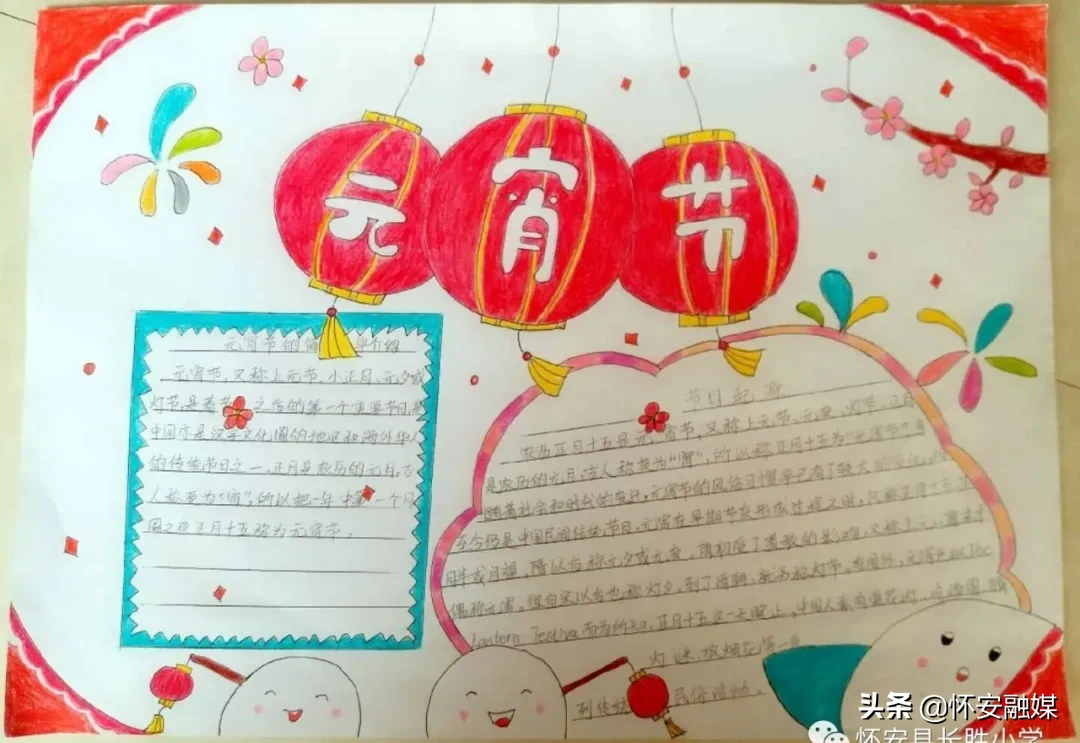 元宵节
元宵节的简 单介绍
元宵节,又称上元节、小正月、元夕或
灯节,是春节 之后的第一个重要节日,是
中国亦是汉字文化圈的地区和海外华人
的传统节日之一。正月是农历的元月,古
人称夜为“宵”,所以把一年中第一个月
圆之夜正月十五称为元宵节。
节日起源
农历正月十五是元宵节,又称上元节、元夜、灯节。正月
是农历的元月,古人称夜为“宵”,所以称正月十五为“元宵节”。
随着社会和时代的变迁,元宵节的风俗习惯早已有了较大的变化,但
至今仍是中国民间传统节日。元宵在早期节庆形成过程之时,只称正月十五日
月半或月望,隋以后称元夕或元夜。唐初受了道教的影响,又称上元,唐末才
偶称元宵。但自宋以后也称灯夕。到了清朝,就另称灯节。在国外,元宵也以The
Lantern Festiva而为所知。正月十五这一天晚上,中国人素有赏花灯、
灯谜、放烟花等一
列传统 民俗活动。
头条 @怀安融媒
怀安县长胜小学